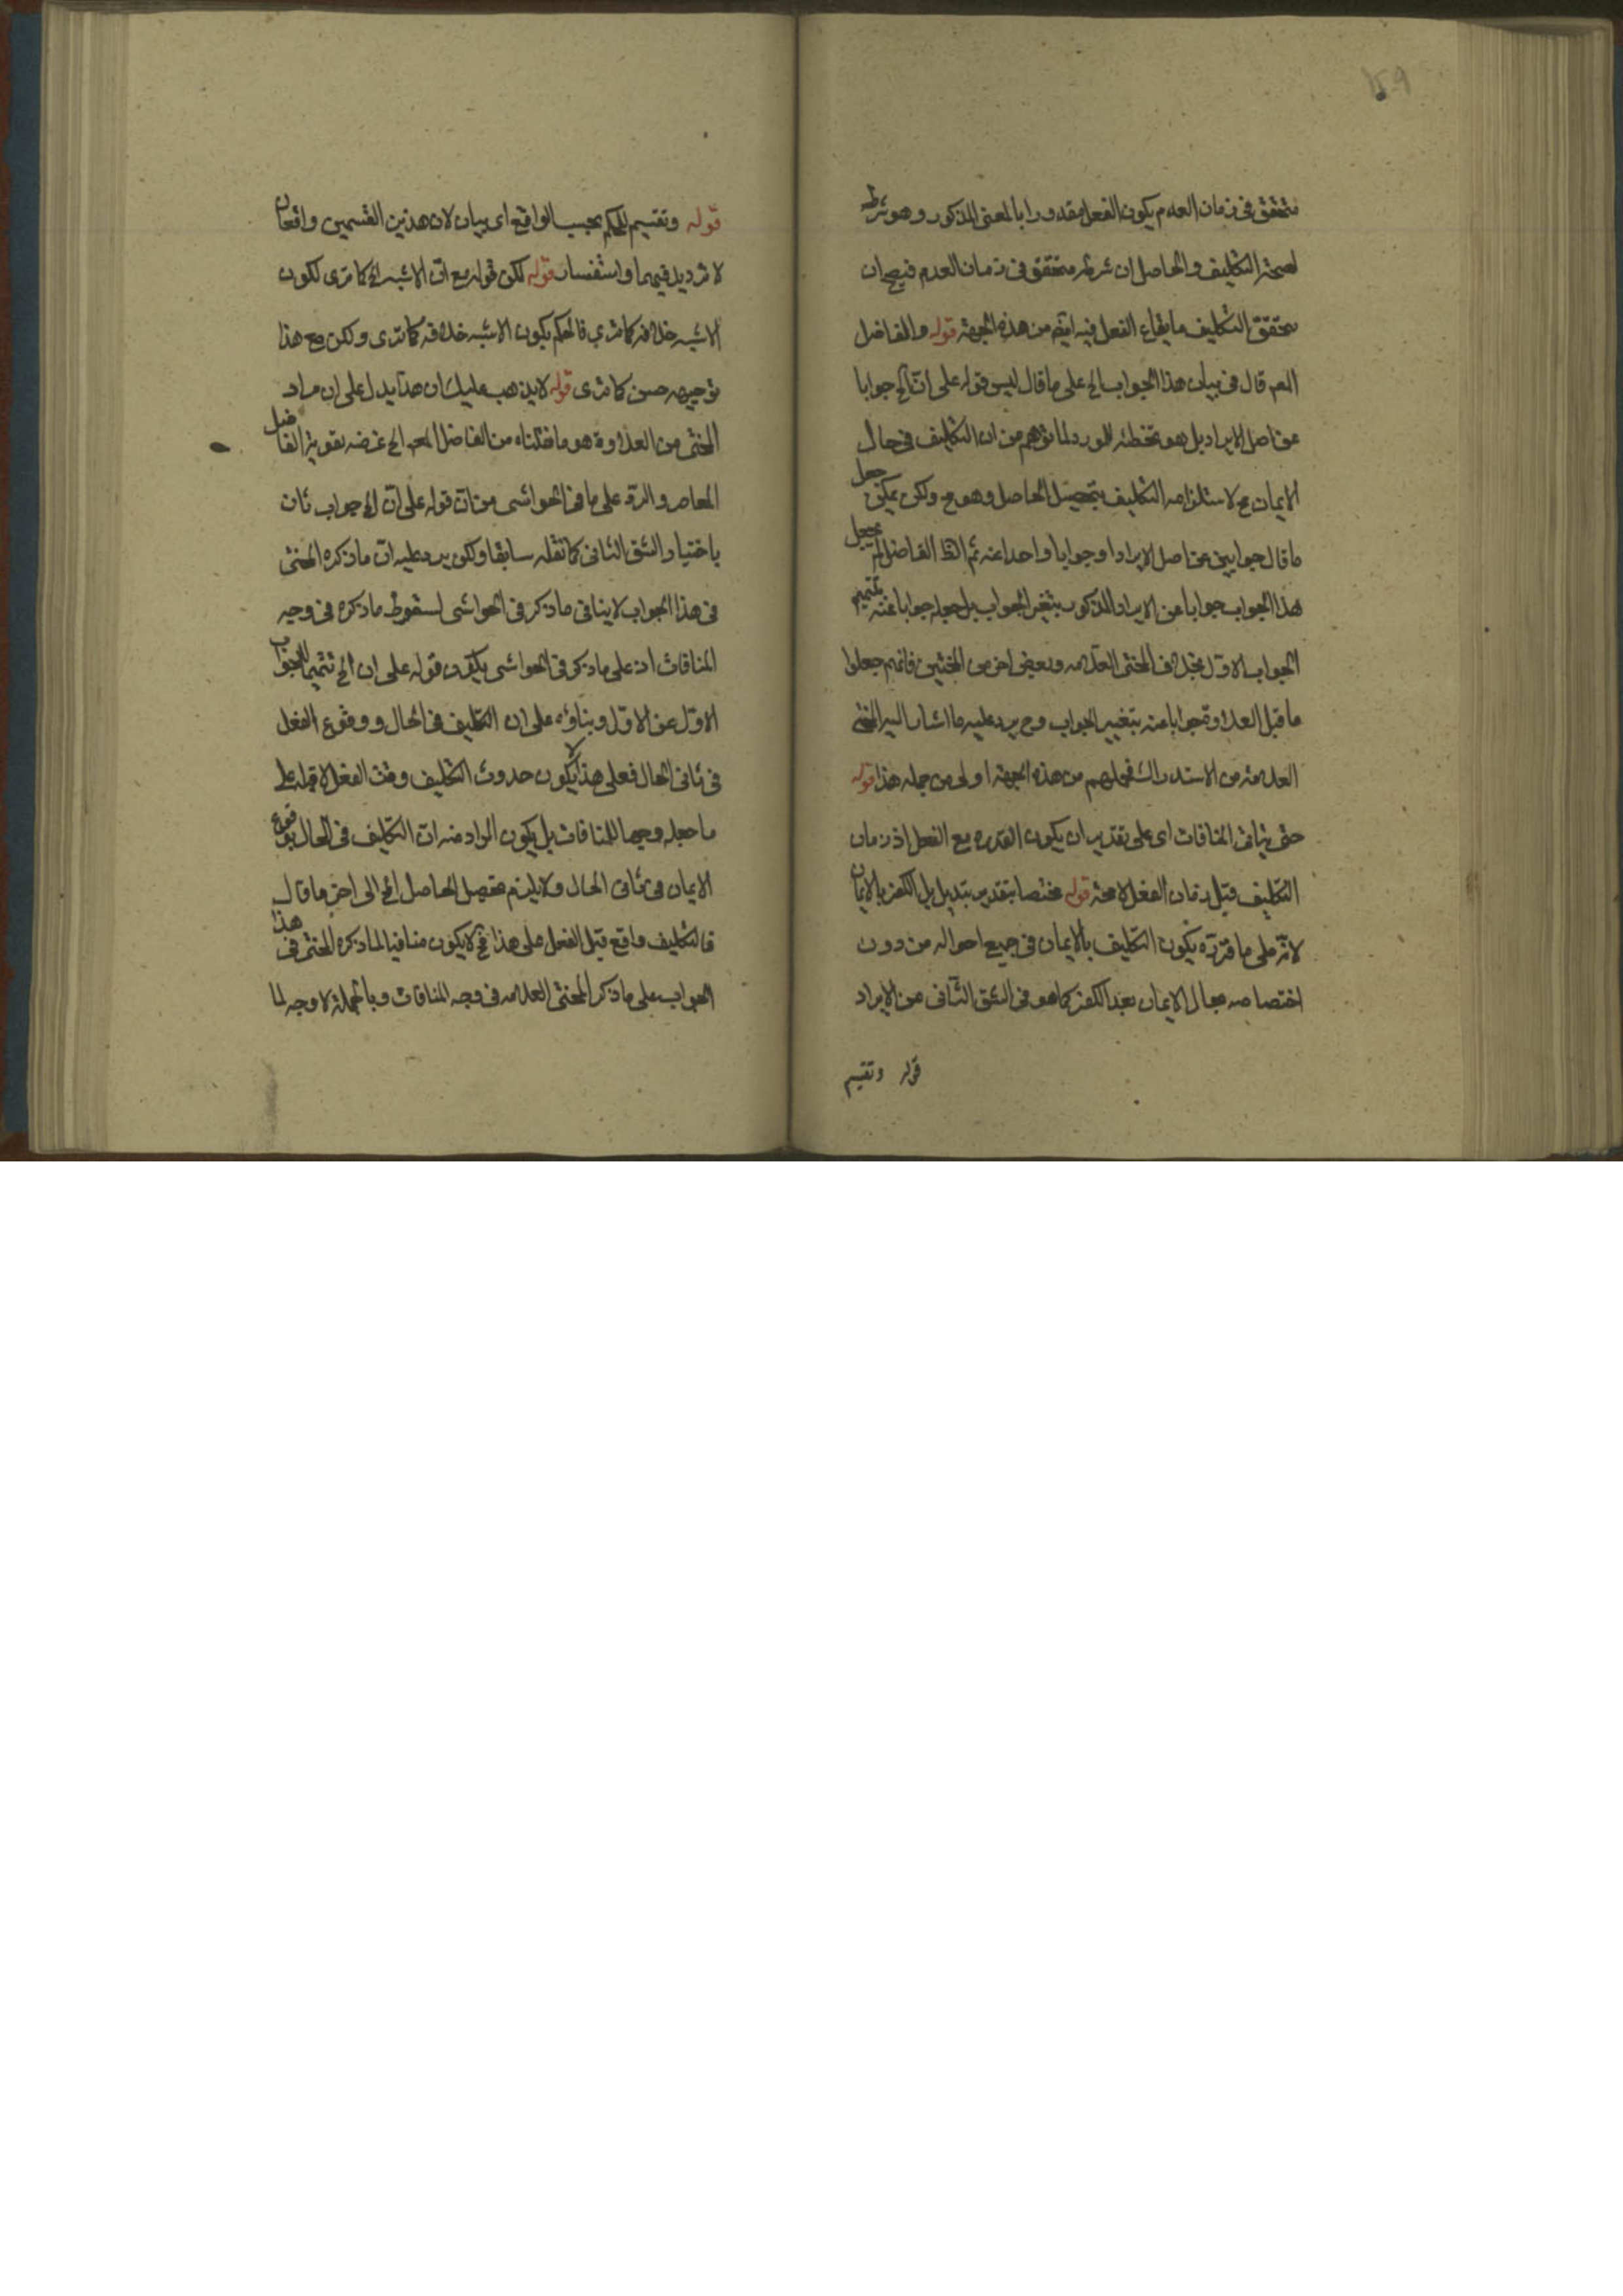 متحقق فى زمان العدم يكون الفعل مقدورا بالمعنى المذكور وهو شرط
لصحة التكليف والحاصل ان شرطه متحقق فى زمان العدم فيصح ان
يتحقق التكليف بايقاع الفعل فيه ايضا من هذه الجهة قوله والفاضل
المعاصر قال فى بيان هذا الجواب الخ على ما قال ليس قوله على ان الخ جوابا
عن اصل الايراد بل هو تخطئة للمورد لما توهم من ان التكليف فى حال
الايمان مح لاستلزامه التكليف بتحصيل الحاصل وهو مح ولكن يمكن جعل
ما قال جوابين عن اصل الايراد او جوابا واحدا عنه ثم الظ الفاضل لم يجعل
هذا الجواب جوابا عن الايراد المذكور بتغير الجواب بل جعله جوابا عنه بتتميم
الجواب الاول بخلاف المحشى العلامه وبعض اخر من المحشين فانهم جعلوا
ما قبل العلاوة جوابا عنه بتغيير الجواب وح يرد عليه ما اشار اليه المحشى
العلامة من الاستدراك فحملهم من هذه الجهة اولى من حمله هذا قوله
حتى ينافى المنافات اى على تقدير ان يكون القدره مع الفعل اذ زمان
التكليف قبل زمان الفعل لا محة قوله مختصا بتقدير تبديل الكفر بالايمان
لانه على ما قرره يكون التكليف بالايمان فى جميع احواله من دون
اختصاصه بحال الايمان بعد الكفر كما هو فى الشق الثانى من الايراد
قوله وتقسيم
قوله وتقسيم للحكم بحسب الواقع اى بيان لان هذين القسمين واقعان
لا ترديد فيهما واستفسار قوله لكن قوله مع ان الاشبه الخ كما ترى لكون
الاشبه خلافه كما ترى فالحكم بكون الاشبه خلافه كما ترى ولكن مع هذا
توجيهه حسن كما ترى قوله لا يذهب عليك ان هذا يدل على ان مراد
المحشى من العلاوة هو ما نقلناه من الفاضل الخ غرضه تقوية الفاضل
المعاصر والرد على ما فى الحواشى من ان قوله على ان الخ جواب ثان
باختيار الشق الثانى كما نقله سابقا ولكن يرد عليه ان ما ذكره المحشى
فى هذا الجواب لا ينافى ما ذكر فى الحواشى لسقوط ما ذكره فى وجه
المنافات اذ على ما ذكر فى الحواشى يكون قوله على ان الخ تتميما للجواب
الاول عن الاول وبناؤه على ان التكليف فى الحال ووقوع الفعل
فى ثانى الحال فعلى هذا لا يكون حدوث التكليف وقت الفعل لا قبله على
ما جعله وجها للمنافات بل يكون المراد منه ان التكليف فى الحال بوقوع
الايمان فى ثانى الحال ولا يلزم تحصيل الحاصل الخ الى اخر ما قال
فالتكليف واقع قبل الفعل على هذا فح لا يكون منافيا لما ذكره المحشى فى هذا
الجواب على ما ذكر المحشى العلامه فى وجه المنافات وبالجملة لا وجه لما